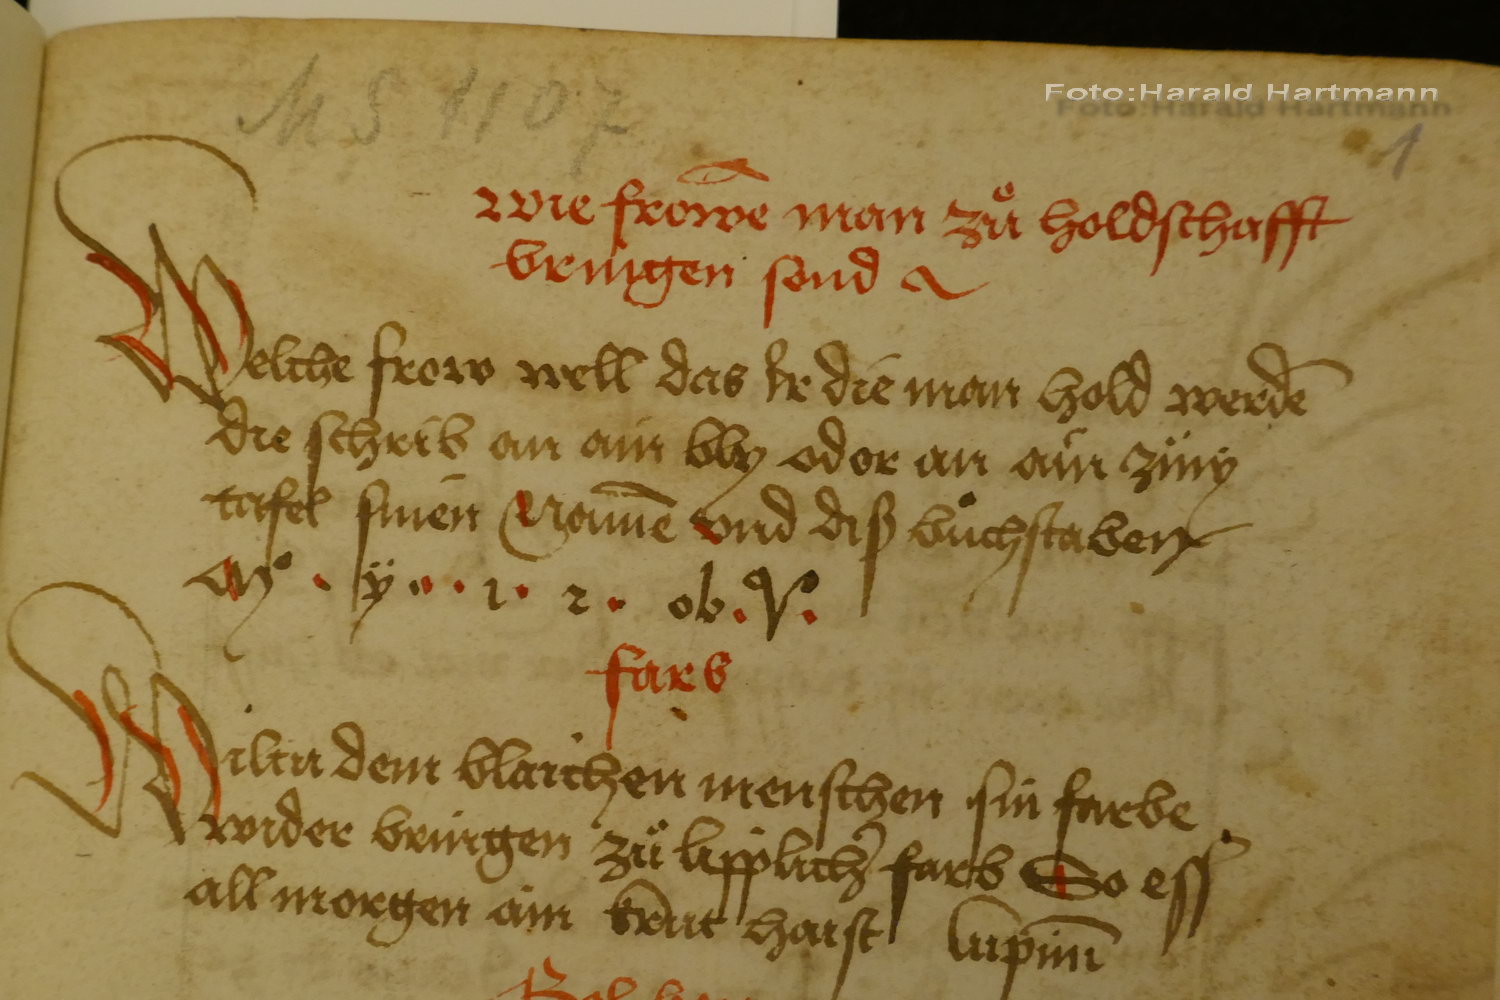 MS 1107
Foto:Harald Hartmann
1
wie frowē man zů holdschafft
bringen sond
Welche frow well das ir die man hold werdē
die schrib an ain bly oder an ain ziny
tafel sinen Namē vnd diß bůchstaben
ÿ . . 1 . 2 . ob .
farb
Wiltu dem blaichen menschen sin farbe
wider bringen zů lipplicher farb So ess
all morgen ain krut haist lupinū